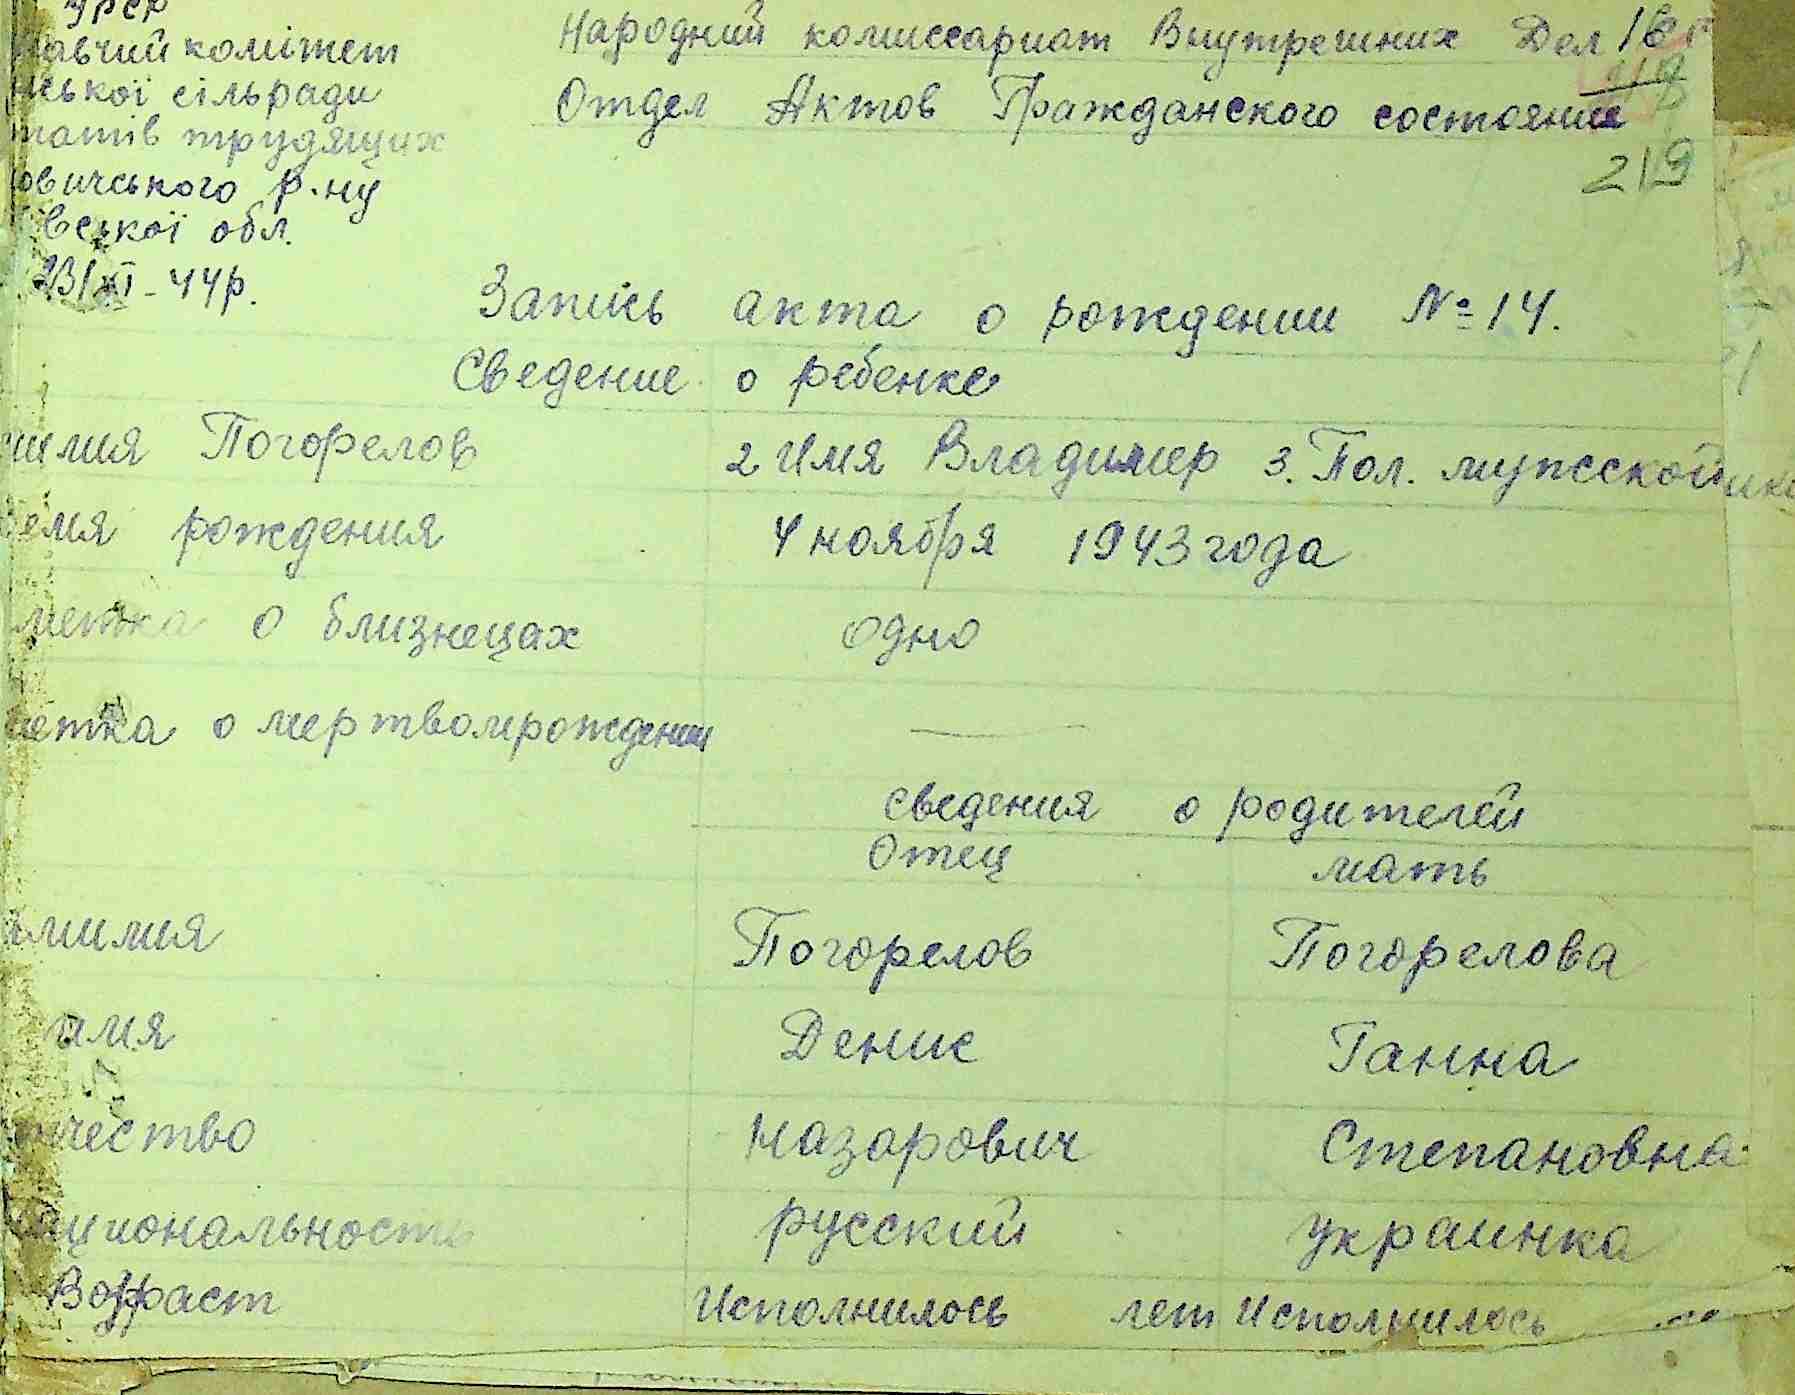 УРСР
авчий комітет
ської сільради
татів трудящих
овичського р-ну
вської обл.
23/XI - 44р.
Народний комиссариат Внутрешних Дел
Отдел Актов Гражданского состояние
219
Запись акта о рождении № 14.
Сведение о ребенке
милия Погорелов 2 Имя Владимер 3. Пол. мужсской
емя рождения 4 ноября 1943 года
метка о близнецах одно
етка о мертвомрождении
сведения о родителей
Отец мать
амилия Погорелов Погорелова
имя Денис Ганна
чество Назарович Степановна
циональность русский украинка
Возраст Исполнилось лет Исполнилось